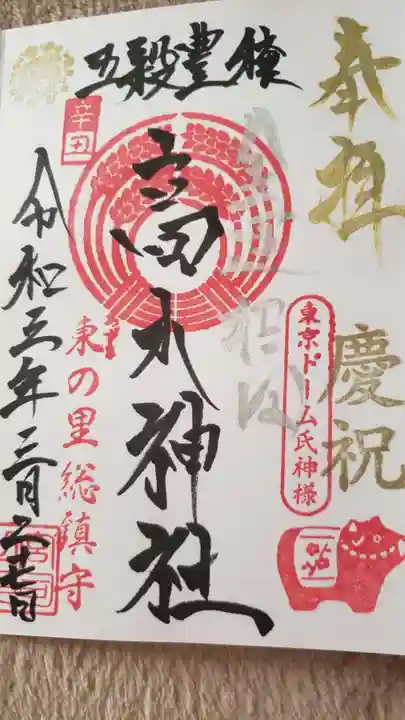 奉拝
慶祝
東京ドーム氏神様
五穀豊穣
高木神社
辛丑
東の里総鎮守
令和三年三月二十七日